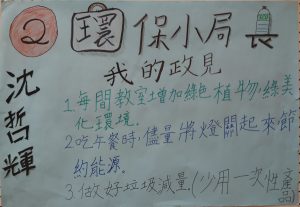 2 環保小局長
我的政見
沈哲輝
1.每間教室增加綠色植物,綠美
化環境.
2.吃午餐時,儘量將燈關起來節
約能源.
3.做好垃圾減量.(少用一次性產品)